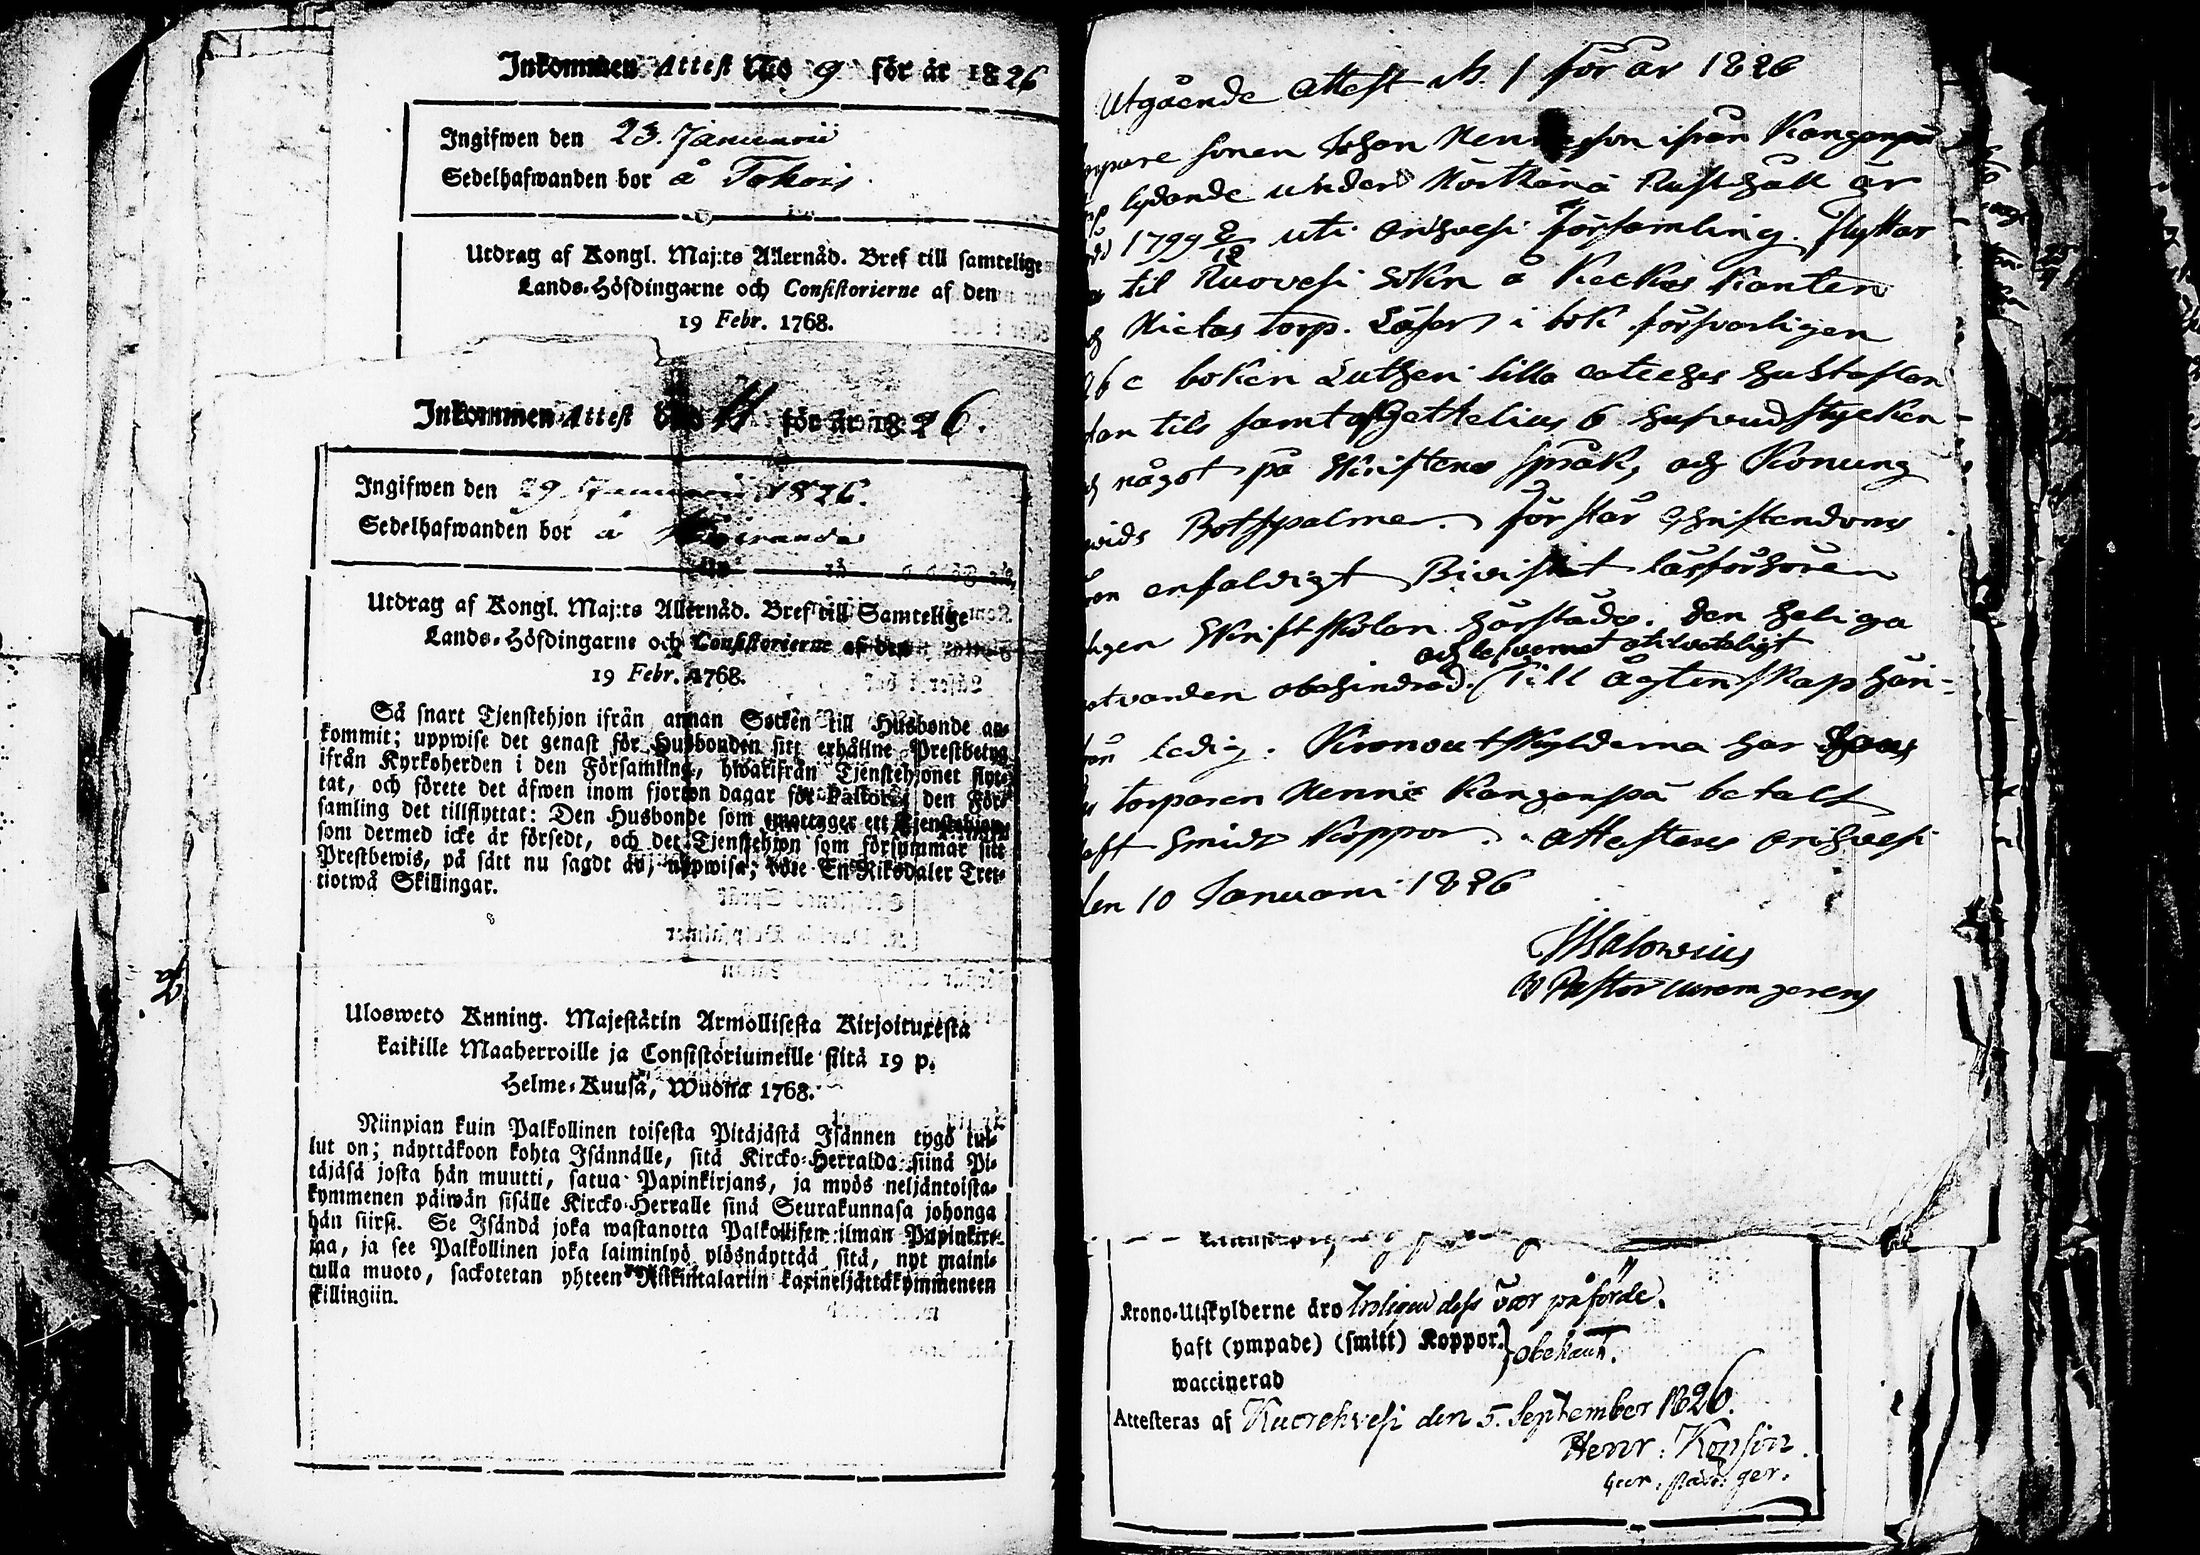 Inkommen Attest No 9 för år 1826
Ingifwen den 23. Januarii
Sedelhafwanden bor å Tokois
Utdrag af Kongl. Maj:ts Allernåd. Bref till samtelige
Lands-Höfdingarne och Consistorierne af den
19 Febr. 1768.
Inkommen Attest No 11 för år 1826.
Ingifwen den 29. Januarii 1826.
Sedelhafwanden bor å
Utdrag af Kongl. Maj:ts Allernåd. Bref till Samtelige
Lands-Höfdingarne och Consistorierne af den
19 Febr. 1768.
Så snart Tjenstehjon ifrån annan Socken till Husbonde an-
kommit; uppwise det genast för Husbonden sitt erhållne Prestbetyg
ifrån Kyrkoherden i den Församling, hwarifrån Tjenstehjonet flyt-
tat, och förete det äfwen inom fjorton dagar för Pastor i den För-
samling det tillflyttat: Den Husbonde som emottager ett Tjenstehjon
som dermed icke är försedt, och det Tjenstehjon som försummar sitt
Prestbewis, på sätt nu sagdt är, uppwisa; böte En Riksdaler Tret-
tiotwå Skillingar.
8
Ulosweto Kuning. Majestätin Armollisesta Kirjoituxesta
kaikille Maaherroille ja Consistoriumeille siitä 19 p.
Helme-Kuusa, Wuonna 1768.
Niinpian kuin Palkollinen toisesta Pitäjästä Isännen tygö tul-
lut on; näyttäkoon kohta Isännälle, sitä Kircko-Herralda siinä Pi-
täjäsä josta hän muutti, satua Papinkirjans, ja myös neljäntoista-
kymmenen päiwän sisälle Kircko-Herralle siinä Seurakunnasa johonga
hän siirsi. Se Isändä joka wastanotta Palkollisen ilman Papinkir-
jaa, ja see Palkollinen joka laiminlyö ylösnäyttää sitä, nyt maini-
tulla muoto, sackotetan yhteen Riikintalariin kaxineljättäkymmeneen
skillingiin.
Utgående attest N. 1 för år 1826
sonen Johan ifrån Kanganpä
lydande under Rusthåll är
1799 8/12 uti Orihvesi församling. flyttar
til Ruovesi Sokn å Keckos Kanten
torp. Läser i bok försvarligen
abc boken Lutheri lilla cateches hustaflan
til samt Gettelius 6 hufvudstycken
något på Skriftenes språk, och Konung
Botspalmer. förstår Christendoms
enfaldigt Bivistat läsförhören
Skriftskolan härstädes. den heliga
och lefvernet otilvateligt
obehindrad. Till ägtenskap hän-
ledig. Kronoutskylderna har
torparen Kanganpä betalt
haft smidt Koppor. Attesteras Orihvesi
den 10 Januari 1826
JMalonius
V Pastor curam gerens
Krono-Utskylderne äro troligen dess Far påförde.
haft (ympade) (smitt) Koppor. } obekant.
waccinerad
Attesteras af Kuorehvesi den 5. September 1826.
Henr: Konsin.